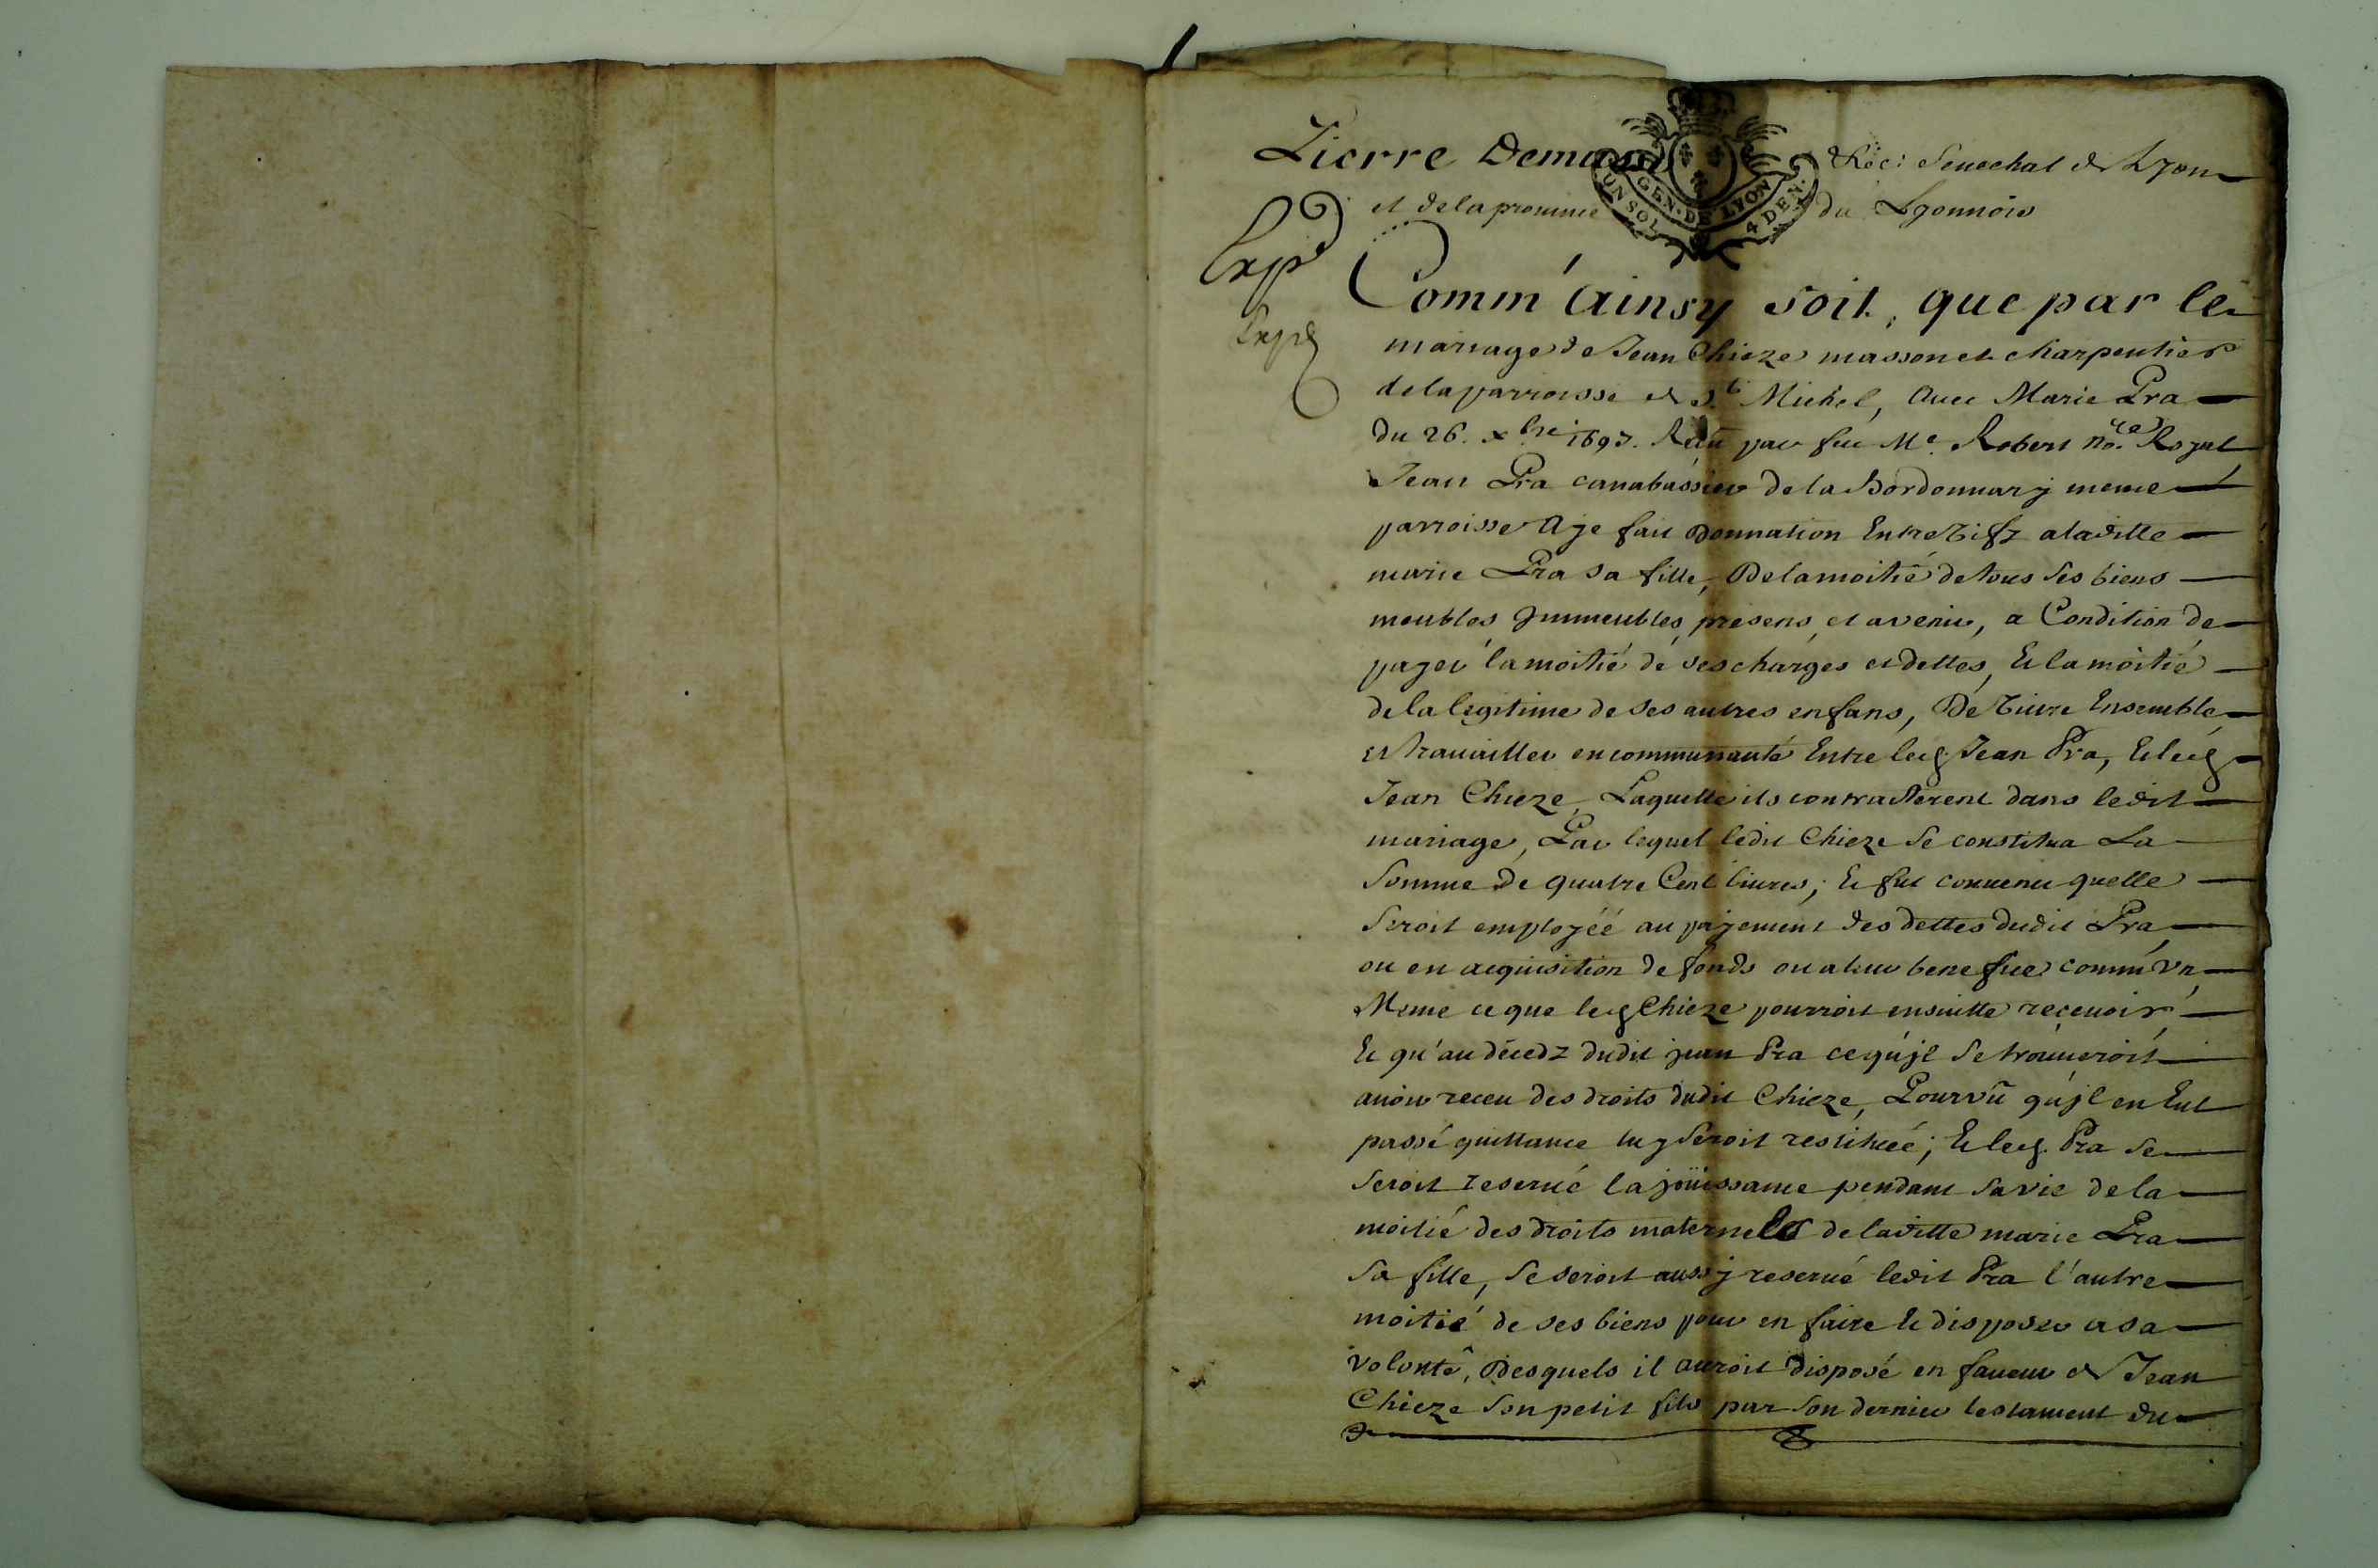 Pierre Demasso &c: Senechal de Lyon
et de la province du Lyonnois
GEN. DE LYON
UN SOL 4 DEN.
Exp.d
Exp.
Comm'Ainsy soit, que par le
mariage de Jean Chieze masson et charpentier
de la parroisse de St Michel, Avec Marie Pra
du 26. xbre 1697. Receu par feu Me. Robert nore. Royal
Jean Pra canabassier de la Bordonnary meme
parroisse Aje fait Donnation Entre vifz a laditte
marie Pra sa fille, De la moitié de tous ses biens
meubles Jmmeubles, presens et avenir, a Condition de
payer la moitié de ses charges et dettes, Et la moitié
de la legitime de ses autres enfans, De vivre Ensemble
et travailler en communauté Entre led. Jean Pra, Et led.
Jean Chieze, Laquelle ils contracterent dans ledit
mariage, Par lequel ledit Chieze se constitua La
somme de quatre Cent livres; Et fut convenu quelle
seroit employéé au payement des dettes dudit Pra
ou en acquisition de fonds ou a leur benefice commu'n,
Meme ce que led. Chieze pourroit ensuitte reçevoir
Et qu'au décedz dudit jean Pra ce qu'jl se trouveroit
avoir receu des droits dudit Chieze, Pourvû qu'jl en Eut
passé quittance luy seroit restituéé; Et led. Pra se
seroit reservé la joüissance pendant sa vie de la
moitié des droits maternels de laditte marie Pra
sa fille, se seroit aussy reservé ledit Pra l'autre
moitié de ses biens pour en faire Et disposer a sa
volonté, Desquels il auroit disposé en faveur de Jean
Chieze son petit fils par son dernier testament du